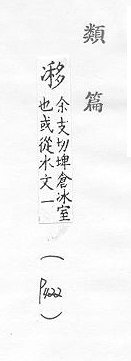 類篇
余支切埤倉冰室
也或從水文一
(P422)